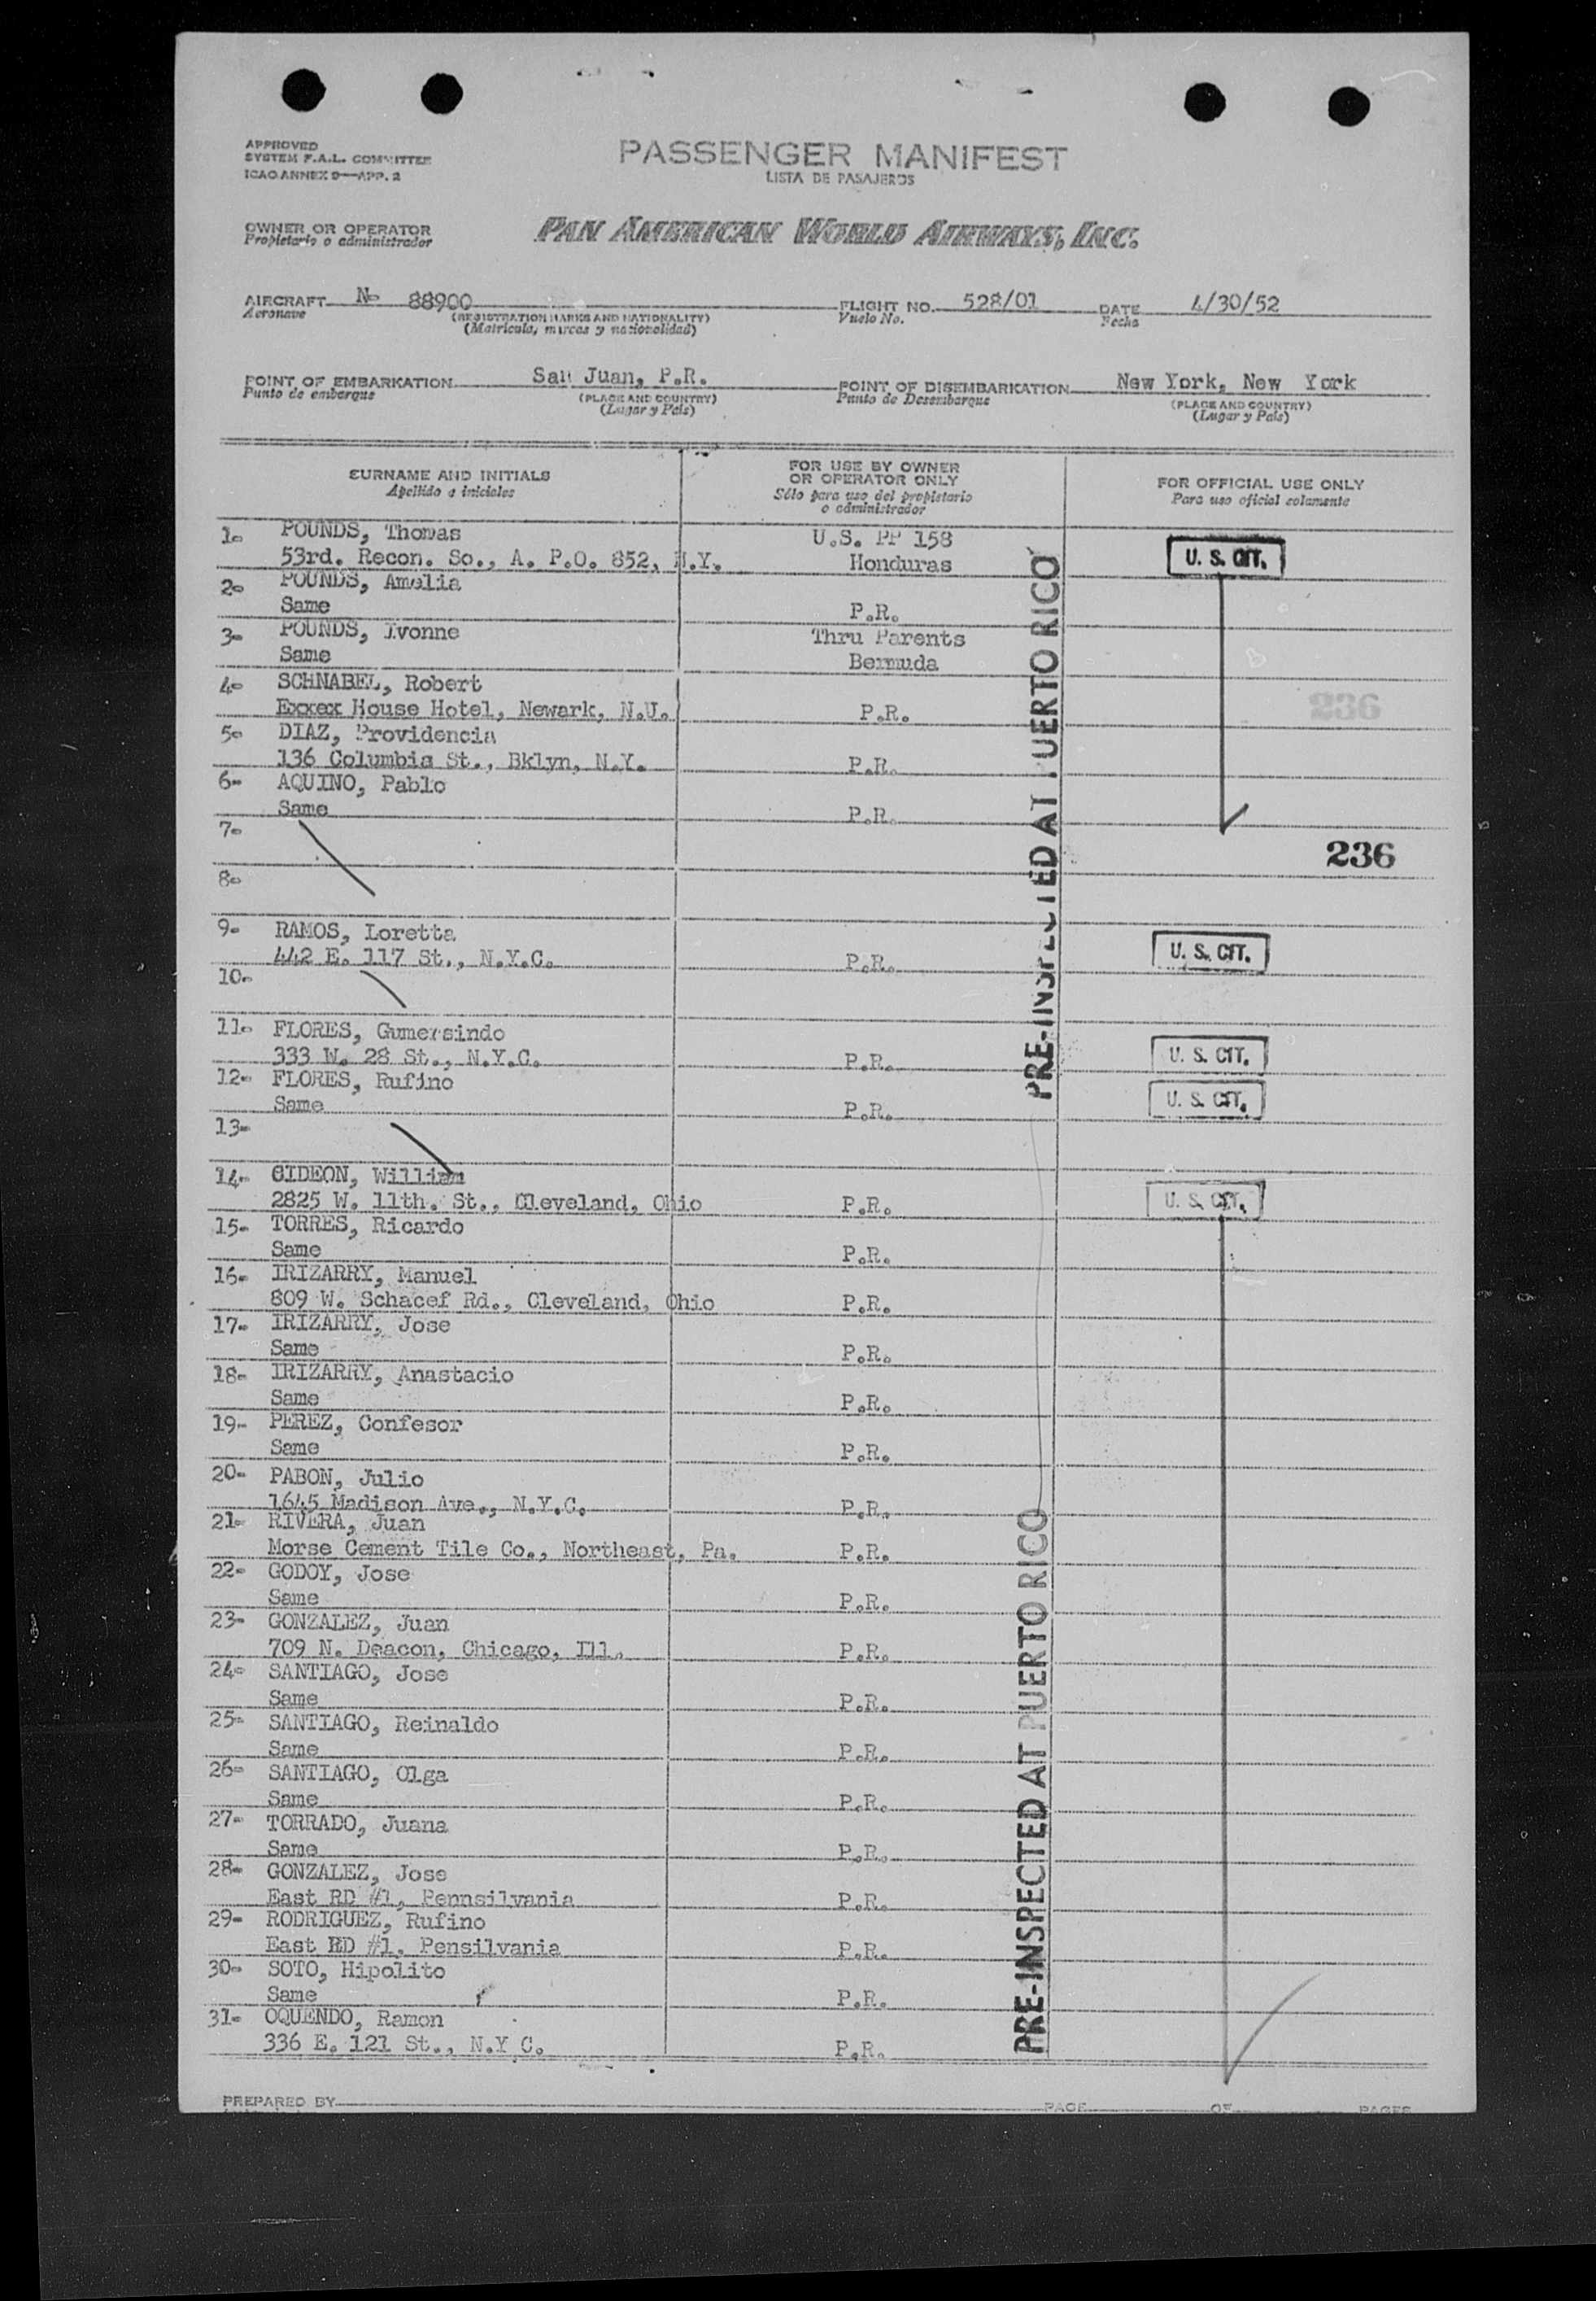 APPROVED
SYSTEM F.A.L. COMMITTEE
ICAO ANNEX 9—APP. 2
PASSENGER MANIFEST
LISTA DE PASAJEROS
OWNER OR OPERATOR
Propietario o administrador
PAN AMERICAN WORLD AIRWAYS, INC.
AIRCRAFT No 88900
Aeronave
(REGISTRATION MARKS AND NATIONALITY)
(Matricula, marcas y nacionalidad)
FLIGHT NO. 528/01
Vuelo No.
DATE 4/30/52
Fecha
POINT OF EMBARKATION San Juan, P.R.
Punto de embarque
(PLACE AND COUNTRY)
(Lugar y País)
POINT OF DISEMBARKATION New York, New York
Punto de Desembarque
(PLACE AND COUNTRY)
(Lugar y País)
SURNAME AND INITIALS
Apellido e iniciales
FOR USE BY OWNER
OR OPERATOR ONLY
Sólo para uso del propietario
o administrador
FOR OFFICIAL USE ONLY
Para uso oficial solamente
1- POUNDS, Thomas U.S. PP 158
53rd. Recon. So., A. P.O. 852, N.Y. Honduras U. S. CIT.
2- POUNDS, Amelia
Same P.R.
3- POUNDS, Ivonne Thru Parents
Same Bermuda
4- SCHNABEL, Robert
Exxex House Hotel, Newark, N.U. P.R.
236
5- DIAZ, Providencia
136 Columbia St., Bklyn, N.Y. P.R.
6- AQUINO, Pablo
Same P.R.
7-
236
8-
9- RAMOS, Loretta
442 E. 117 St., N.Y.C. P.R. U. S. CIT.
10-
11- FLORES, Gumersindo
333 W. 28 St., N.Y.C. P.R. U. S. CIT.
12- FLORES, Rufino
Same P.R. U. S. CIT.
13-
14- GIDEON, William
2825 W. 11th. St., Cleveland, Ohio P.R. U. S. CIT.
15- TORRES, Ricardo
Same P.R.
16- IRIZARRY, Manuel
809 W. Schacef Rd., Cleveland, Ohio P.R.
17- IRIZARRY, Jose
Same P.R.
18- IRIZARRY, Anastacio
Same P.R.
19- PEREZ, Confesor
Same P.R.
20- PABON, Julio
1645 Madison Ave., N.Y.C. P.R.
21- RIVERA, Juan
Morse Cement Tile Co., Northeast, Pa. P.R.
22- GODOY, Jose
Same P.R.
23- GONZALEZ, Juan
709 N. Deacon, Chicago, Ill. P.R.
24- SANTIAGO, Jose
Same P.R.
25- SANTIAGO, Reinaldo
Same P.R.
26- SANTIAGO, Olga
Same P.R.
27- TORRADO, Juana
Same P.R.
28- GONZALEZ, Jose
East RD #1, Pennsilvania P.R.
29- RODRIGUEZ, Rufino
East RD #1, Pensilvania P.R.
30- SOTO, Hipolito
Same P.R.
31- OQUENDO, Ramon
336 E. 121 St., N.Y C. P.R.
PRE-INSPECTED AT PUERTO RICO
PRE-INSPECTED AT PUERTO RICO
PREPARED BY PAGE OF PAGES